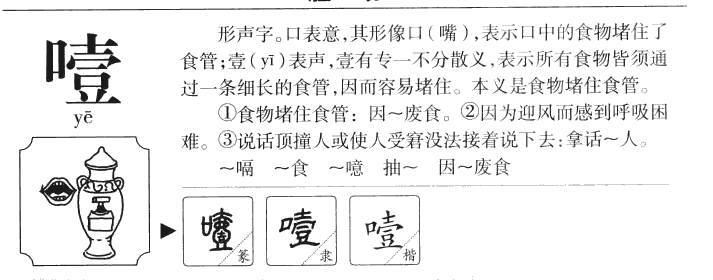 噎
yē
形声字。口表意,其形像口(嘴),表示口中的食物堵住了
食管;壹(yī)表声,壹有专一不分散义,表示所有食物皆须通
过一条细长的食管,因而容易堵住。本义是食物堵住食管。
①食物堵住食管:因~废食。②因为迎风而感到呼吸困
难。③说话顶撞人或使人受窘没法接着说下去:拿话~人。
~嗝 ~食 ~噫 抽~ 因~废食
噎 篆 噎 隶 噎 楷